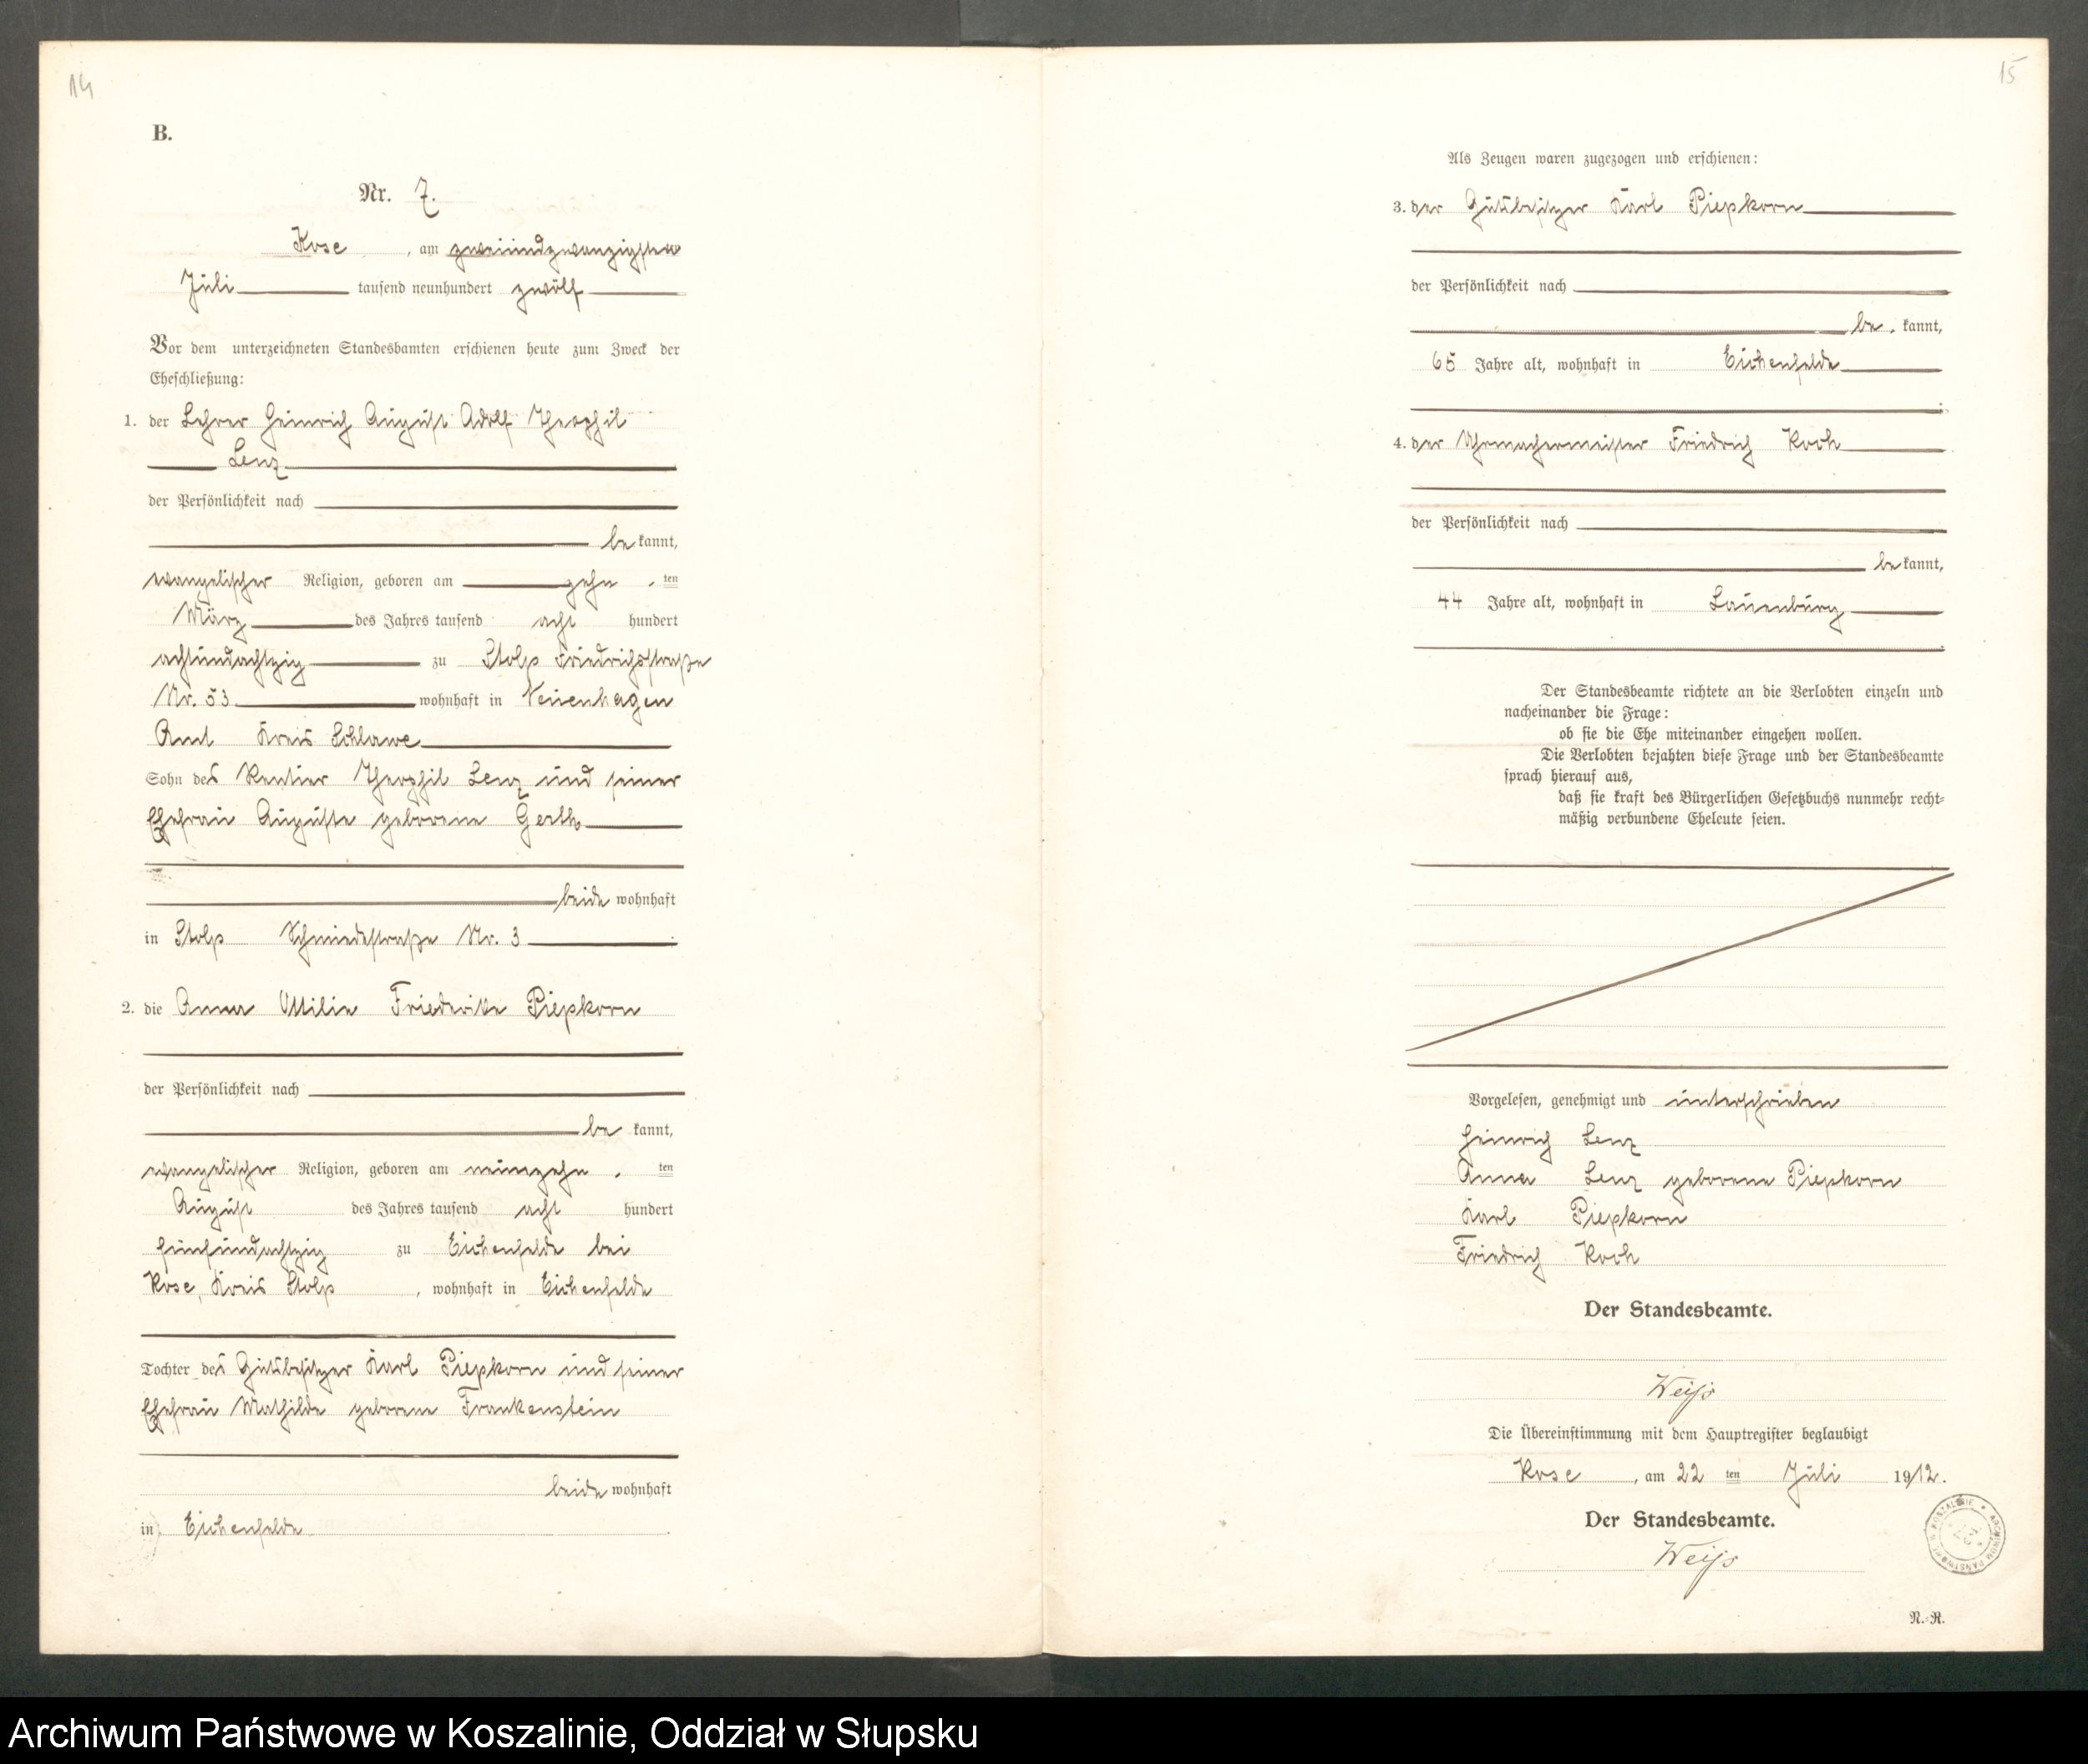 14
B.
Nr. 7.
Kose , am zweiundzwanzigsten
Juli tausend neunhundert zwölf
Vor dem unterzeichneten Standesbamten erschienen heute zum Zweck der
Eheschließung:
1. der Lehrer Heinrich August Adolf Theophil
Lenz
der Persönlichkeit nach
be kannt,
evangelischer Religion, geboren am zehn . ten
März des Jahres tausend acht hundert
achtundachtzig zu Stolp Friedrichstraße
Nr. 53 wohnhaft in Neuenhagen
Amt Kreis Schlawe
Sohn des Rentier Theophil Lenz und seiner
Ehefrau Auguste geborene Gerth
beide wohnhaft
in Stolp Schmiedestraße Nr. 3 .
2. die Anna Ottilie Friederike Piepkorn
der Persönlichkeit nach
be kannt,
evangelischer Religion, geboren am neunzehn . ten
August des Jahres tausend acht hundert
fünfundachtzig zu Eichenfelde bei
Kose, Kreis Stolp , wohnhaft in Eichenfelde
Tochter des Gutsbesitzer Karl Piepkorn und seiner
Ehefrau Mathilde geborene Frankenstein
beide wohnhaft
in Eichenfelde .
15
Als Zeugen waren zugezogen und erschienen:
3. der Gutsbesitzer Karl Piepkorn
der Persönlichkeit nach
be . kannt,
65 Jahre alt, wohnhaft in Eichenfelde
4. der Uhrmachermeister Friedrich Koch
der Persönlichkeit nach
be kannt,
44 Jahre alt, wohnhaft in Lauenburg
Der Standesbeamte richtete an die Verlobten einzeln und
nacheinander die Frage:
ob sie die Ehe miteinander eingehen wollen.
Die Verlobten bejahten diese Frage und der Standesbeamte
sprach hierauf aus,
daß sie kraft des Bürgerlichen Gesetzbuchs nunmehr recht-
mäßig verbundene Eheleute seien.
Vorgelesen, genehmigt und unterschrieben
Heinrich Lenz
Anna Lenz geborene Piepkorn
Karl Piepkorn
Friedrich Koch
Der Standesbeamte.
Weiss
Die Übereinstimmung mit dem Hauptregister beglaubigt
Kose , am 22 ten Juli 1912.
Der Standesbeamte.
Weiss
N.-R.
Archiwum Państwowe w Koszalinie, Oddział w Słupsku